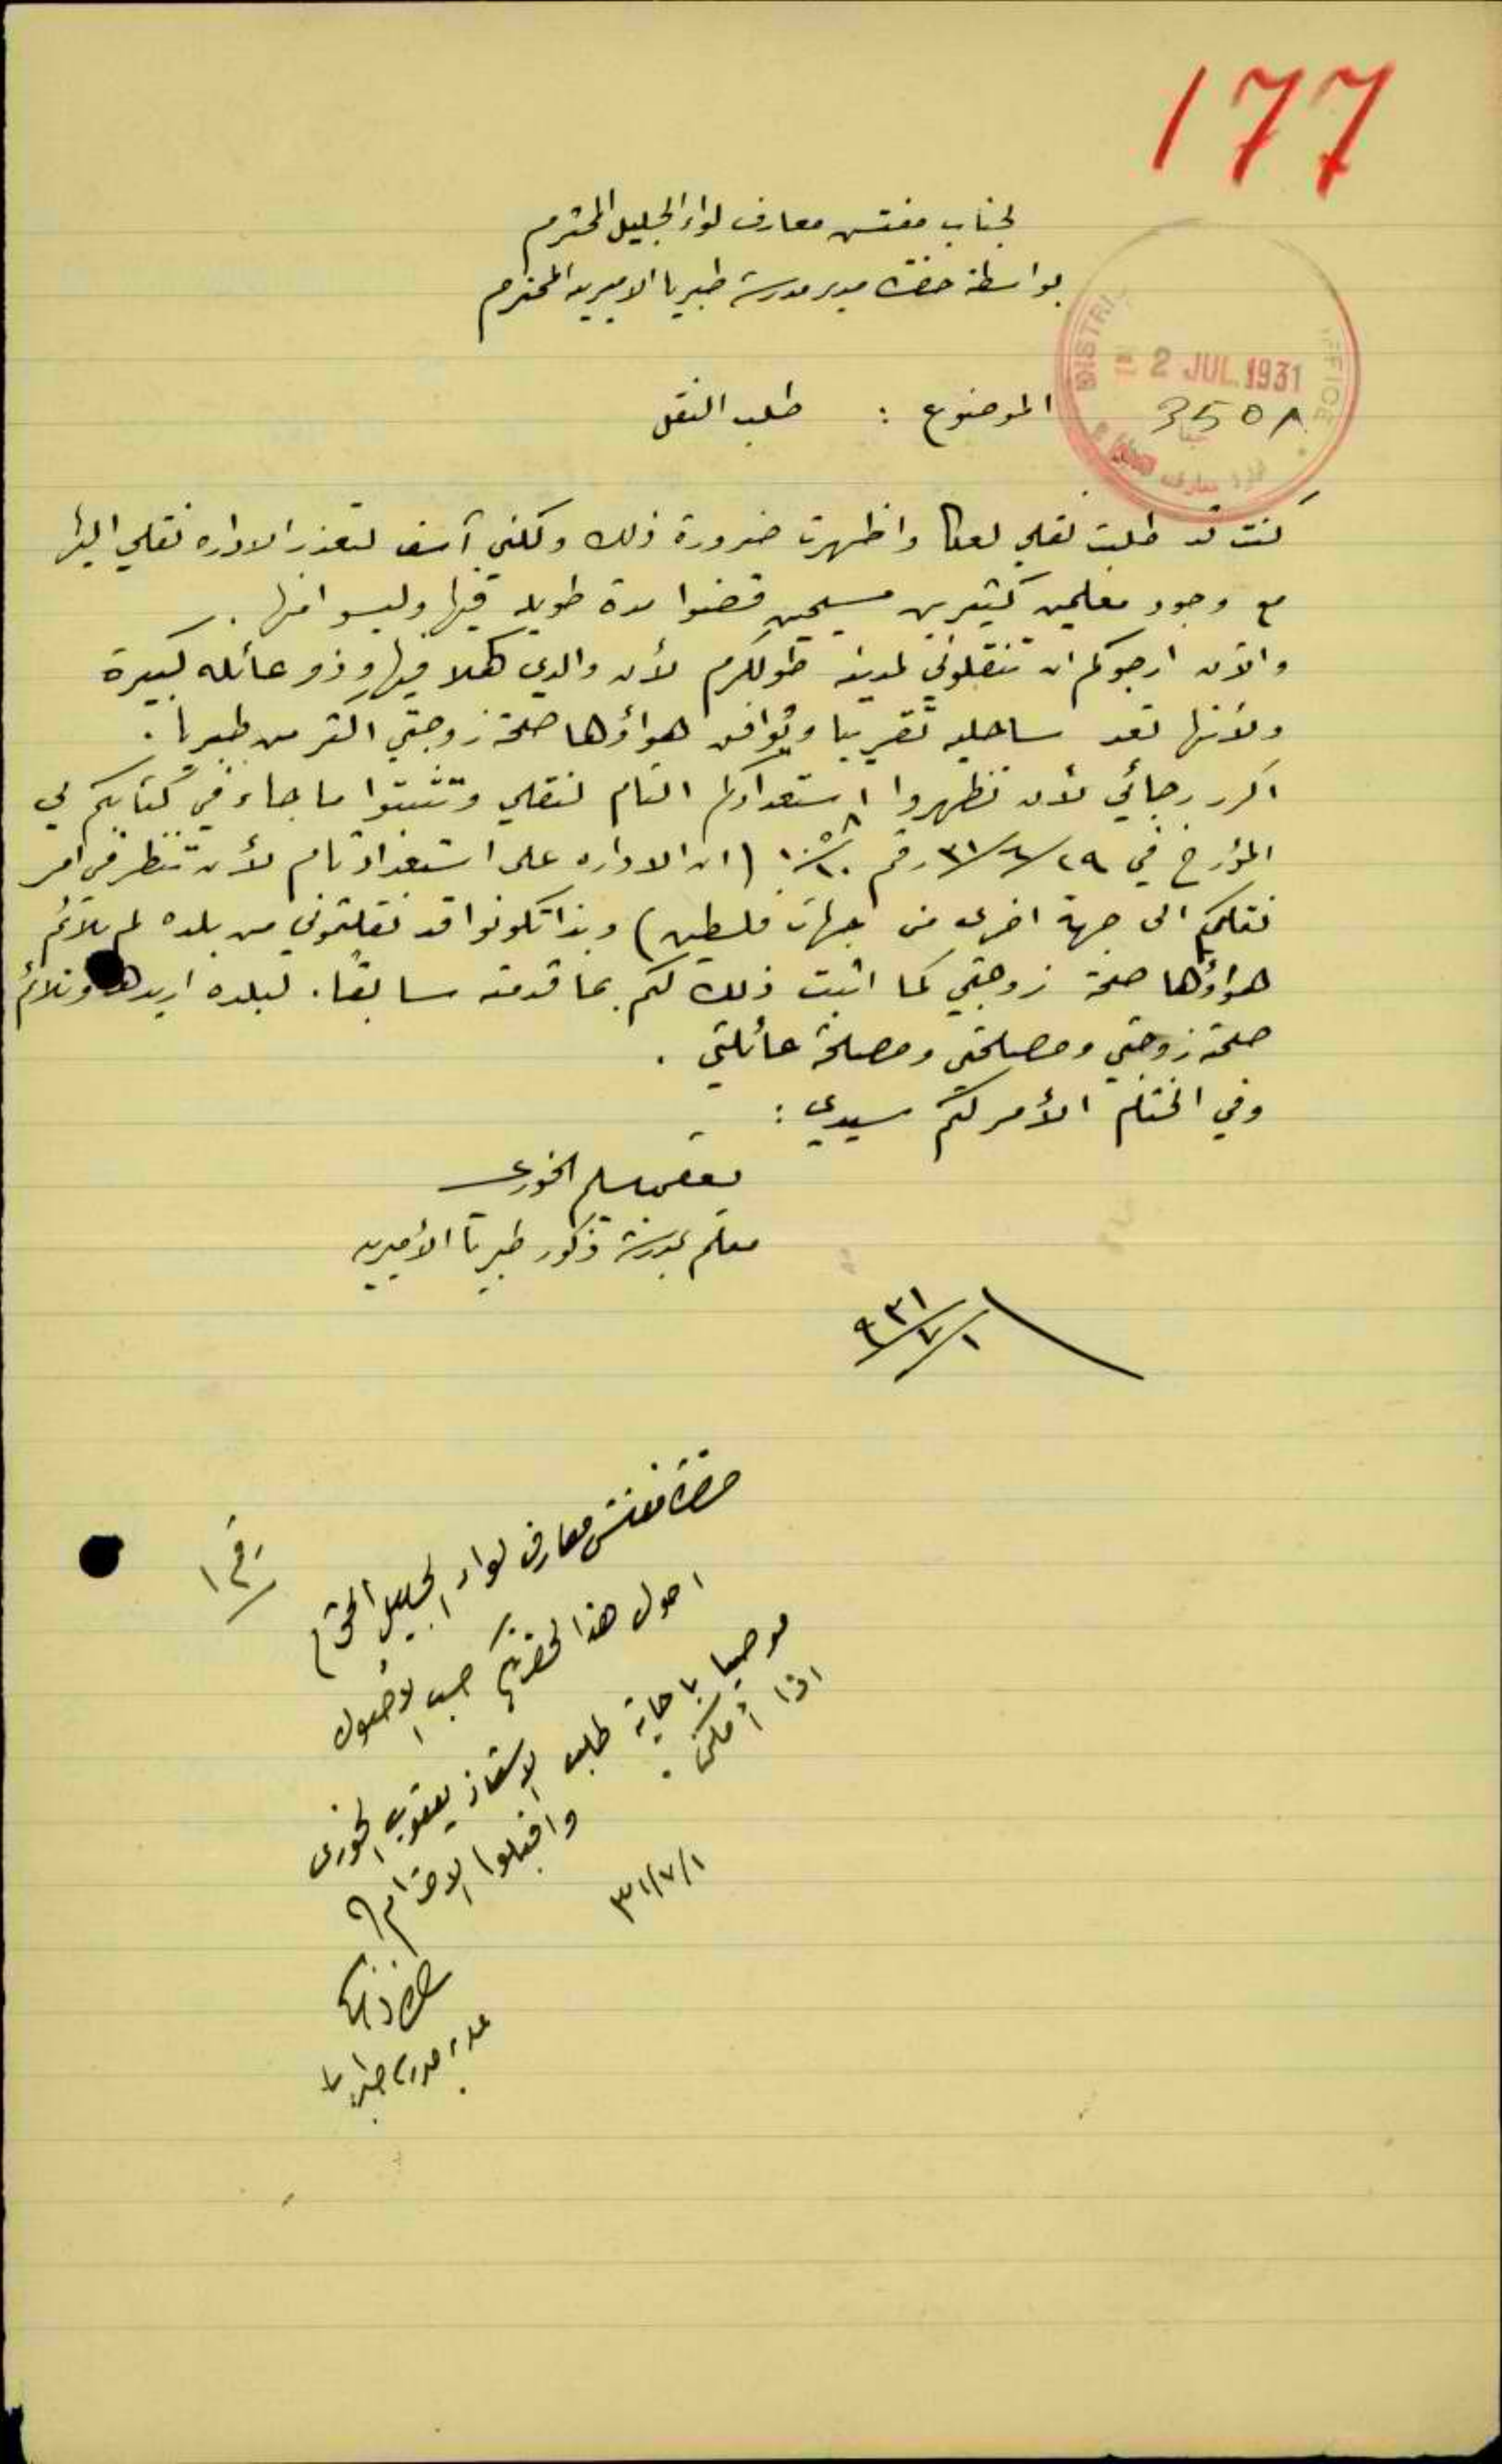 177
لجناب مفتش معارف لواء الجليل المحترم
بواسطة حضرة مدير مدرسة طبريا الاميرية المحترم
DISTRI OFFICE
2 JUL 1931
الموضوع : طلب النقل
كنت قد طلبت نقلي لعكا واظهرت ضرورة ذلك ولكني آسف لتعذر الاداره نقلي اليها
مع وجود معلمين كثيرين مسيحيين قضوا مدة طويله فيها وليسوا منها .
والآن ارجوكم ان تنقلوني لمدينة طولكرم لأن والدي فيها وذو عائله كبيرة
ولأنها تعد ساحليه تقريبا ويوافق هواؤها صحة زوجتي اكثر من طبريا .
اكرر رجائي لأن تظهروا استعدادكم التام لنقلي وتثبتوا ما جاء في كتابكم لي
المؤرخ في ٢٩/٦/٣١ رقم (ان الاداره على استعداد تام لأن تنظر في امر
نقلكم الى جهة اخرى من جهات فلسطين) وبذا تكونوا قد نقلتموني من بلده لم يلائم
هواؤها صحة زوجتي كما اثبت ذلك لكم بما قدمته سابقا . لبلده اريدها وتلائم
صحة زوجتي ومصلحتي ومصلحة عائلتي .
وفي الختام الأمر لكم سيدي :
يعقوب سليم الخوري
معلم بمدرسة ذكور طبريا الأميرية
١/٧/٩٣١
رقم ١
حضرة مفتش معارف لواء الجليل المحترم
احول هذا لحضرتكم حسب الاصول
موصيا باجابة طلب الاستاذ يعقوب الخوري
اذا أمكن .
واقبلوا الاحترام
٣١/٧/١
مدير مدرسة طبريا